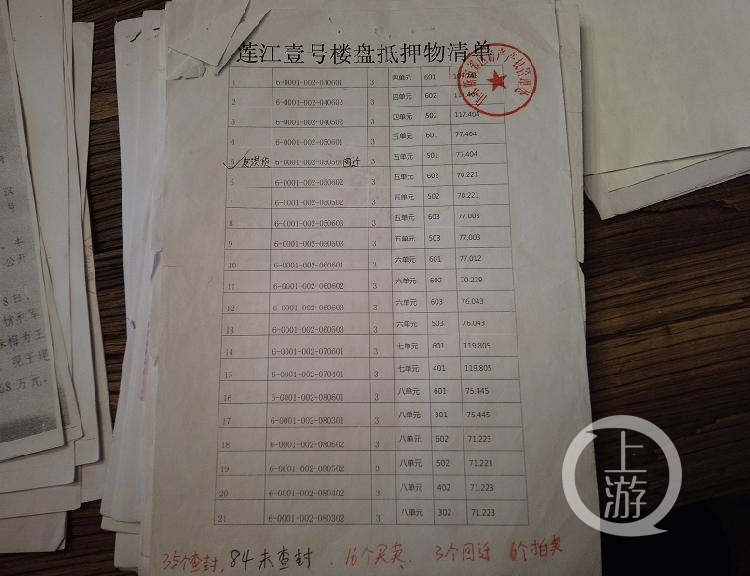 莲江壹号楼盘抵押物清单
1 6-0001-002-040601 3 四单元 601
2 6-0001-002-040602 3 四单元 602 117.404
3 6-0001-002-040502 3 四单元 502 117.404
4 6-0001-002-050601 3 五单元 601 77.404
5 6-0001-002-050501 回迁 3 五单元 501 75.404
6 6-0001-002-050602 3 五单元 602 70.221
7 6-0001-002-050502 3 五单元 502 70.221
8 6-0001-002-050603 3 五单元 603 77.003
9 6-0001-002-050503 3 五单元 503 77.003
10 6-0001-002-060601 3 六单元 601 77.012
11 6-0001-002-060602 3 六单元 602 70.229
12 6-0001-002-060603 3 六单元 603 76.043
13 6-0001-002-060503 3 六单元 503 76.043
14 6-0001-002-070601 3 七单元 601 119.805
15 6-0001-002-070401 3 七单元 401 119.805
16 6-0001-002-080601 3 八单元 601 75.445
17 6-0001-002-080301 3 八单元 301 75.445
18 6-0001-002-080602 3 八单元 602 71.223
19 6-0001-002-080502 3 八单元 502 71.223
20 6-0001-002-080402 3 八单元 402 71.223
21 6-0001-002-080302 3 八单元 302 71.223
35个查封, 84未查封. 16个买卖. 3个回迁 6个拍卖
上游